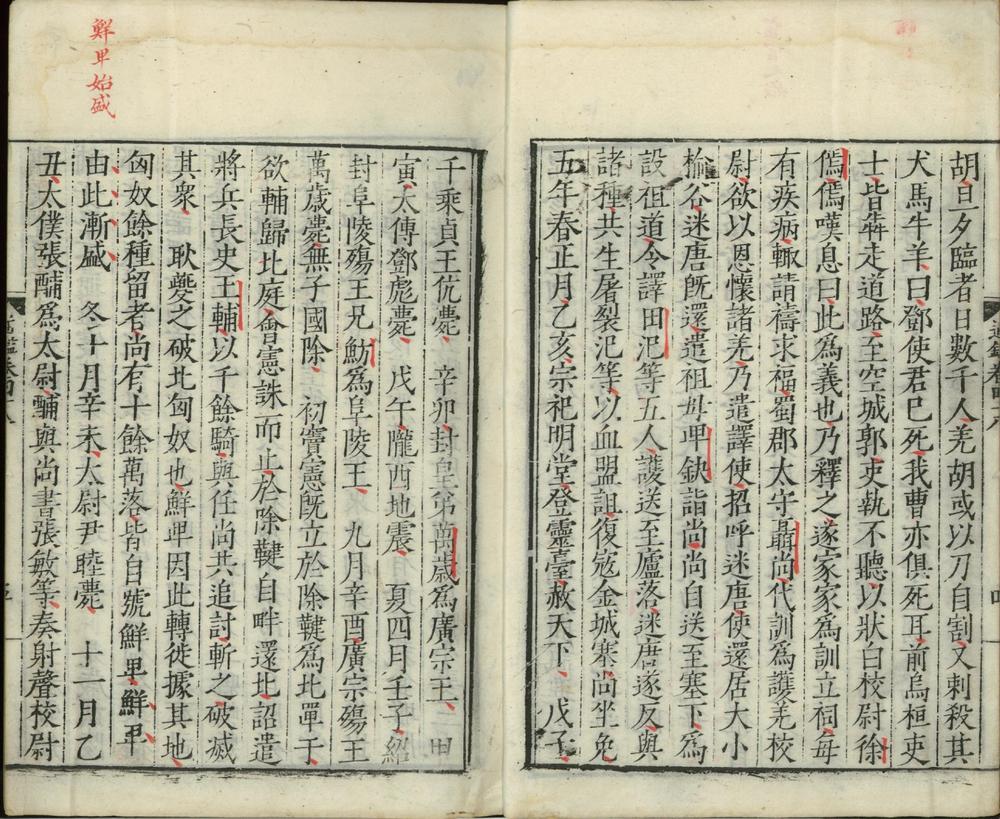 胡旦夕臨者日數千人羌胡或以刀自割又刺殺其
犬馬牛羊曰鄧使君已死我曹亦俱死耳前烏桓吏
士皆犇走道路至空城郭吏執不聽以狀白校尉徐
傿傿嘆息曰此為義也乃釋之遂家家為訓立祠每
有疾病輙請禱求福蜀郡太守聶尚代訓為護羌校
尉欲以恩懷諸羌乃遣譯使招呼迷唐使還居大小
榆谷迷唐旣還遣祖母𤰞缺詣尚尚自送至塞下為
設祖道令譯田汜等五人護送至廬落迷唐遂反與
諸種共生屠裂汜等以血盟詛復寇金城塞尚坐免
五年春正月乙亥宗祀明堂登靈臺赦天下 戊子
千乘貞王伉薨 辛卯封皇弟萬歲為廣宗王 二甲
寅太傅鄧彪薨 戊午隴西地震 夏四月壬子紹
封阜陵殤王兄魴為阜陵王 九月辛酉廣宗殤王
萬歲薨無子國除 初竇憲旣立於除鞬為北單于
欲輔歸北庭會憲誅而止於除鞬自畔還北詔遣
將兵長史王輔以千餘騎與任尚共追討斬之破滅
其衆 耿夔之破北匈奴也鮮𤰞因此轉徙據其地
匈奴餘種留者尚有十餘萬落皆自號鮮𤰞鮮卑
由此漸盛 冬十月辛未太尉尹睦薨 十一月乙
丑太僕張酺為太尉酺與尚書張敏等奏射聲校尉
鮮卑始盛